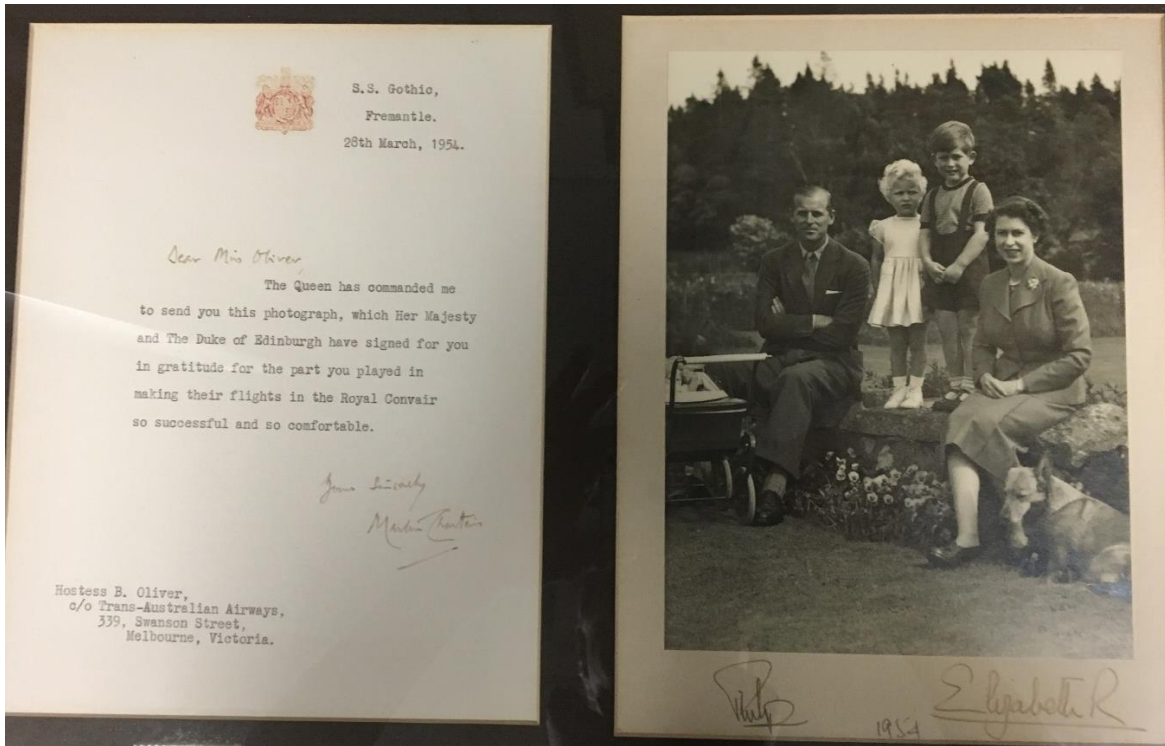 S.S. Gothic,
Fremantle.
28th March, 1954.
Dear Miss Oliver,
The Queen has commanded me
to send you this photograph, which Her Majesty
and The Duke of Edinburgh have signed for you
in gratitude for the part you played in
making their flights in the Royal Convair
so successful and so comfortable.
Yours sincerely
Martin Charteris
Hostess B. Oliver,
c/o Trans-Australian Airways,
339, Swanson Street,
Melbourne, Victoria.
Philip
1954
Elizabeth R